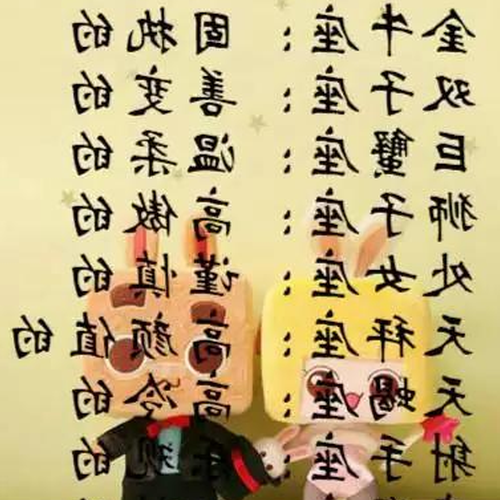 金牛座：固执的
双子座：善变的
巨蟹座：温柔的
狮子座：高傲的
处女座：谨慎的
天秤座：高颜值的
天蝎座：高冷的
射手座：乐观的